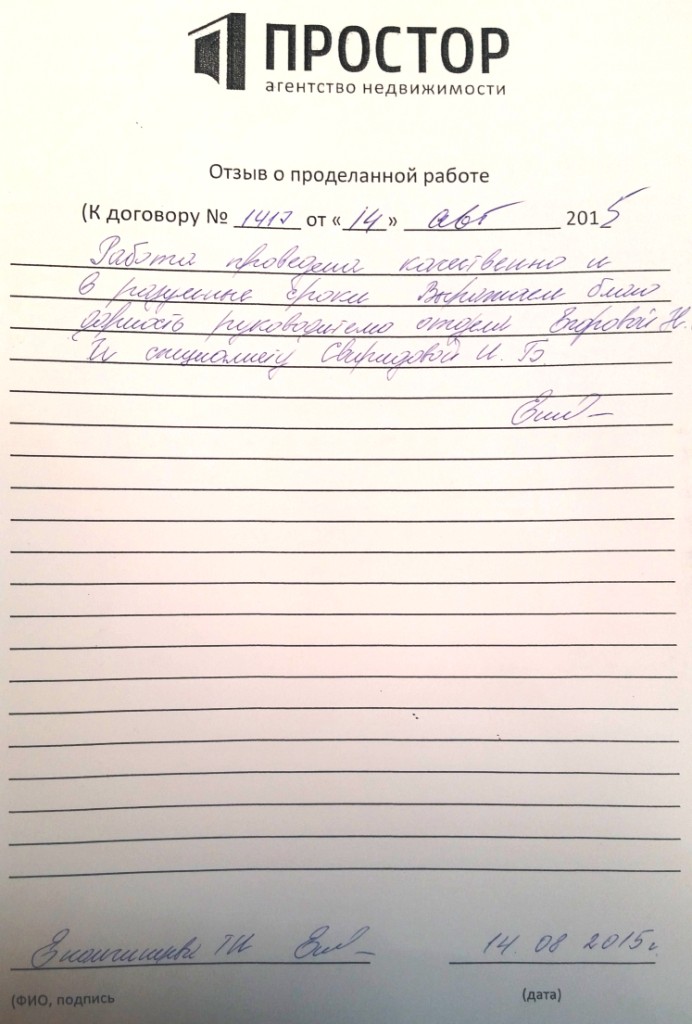 ПРОСТОР
агентство недвижимости
Отзыв о проделанной работе
(К договору № 1417 от «14» авг 2015
Работа проведена качественно и
в разумные сроки Выражаем благо
дарность руководителю отдела Н.
И специалисту Свиридовой И. Б.
ТИ
14 08 2015г.
(ФИО, подпись
(дата)